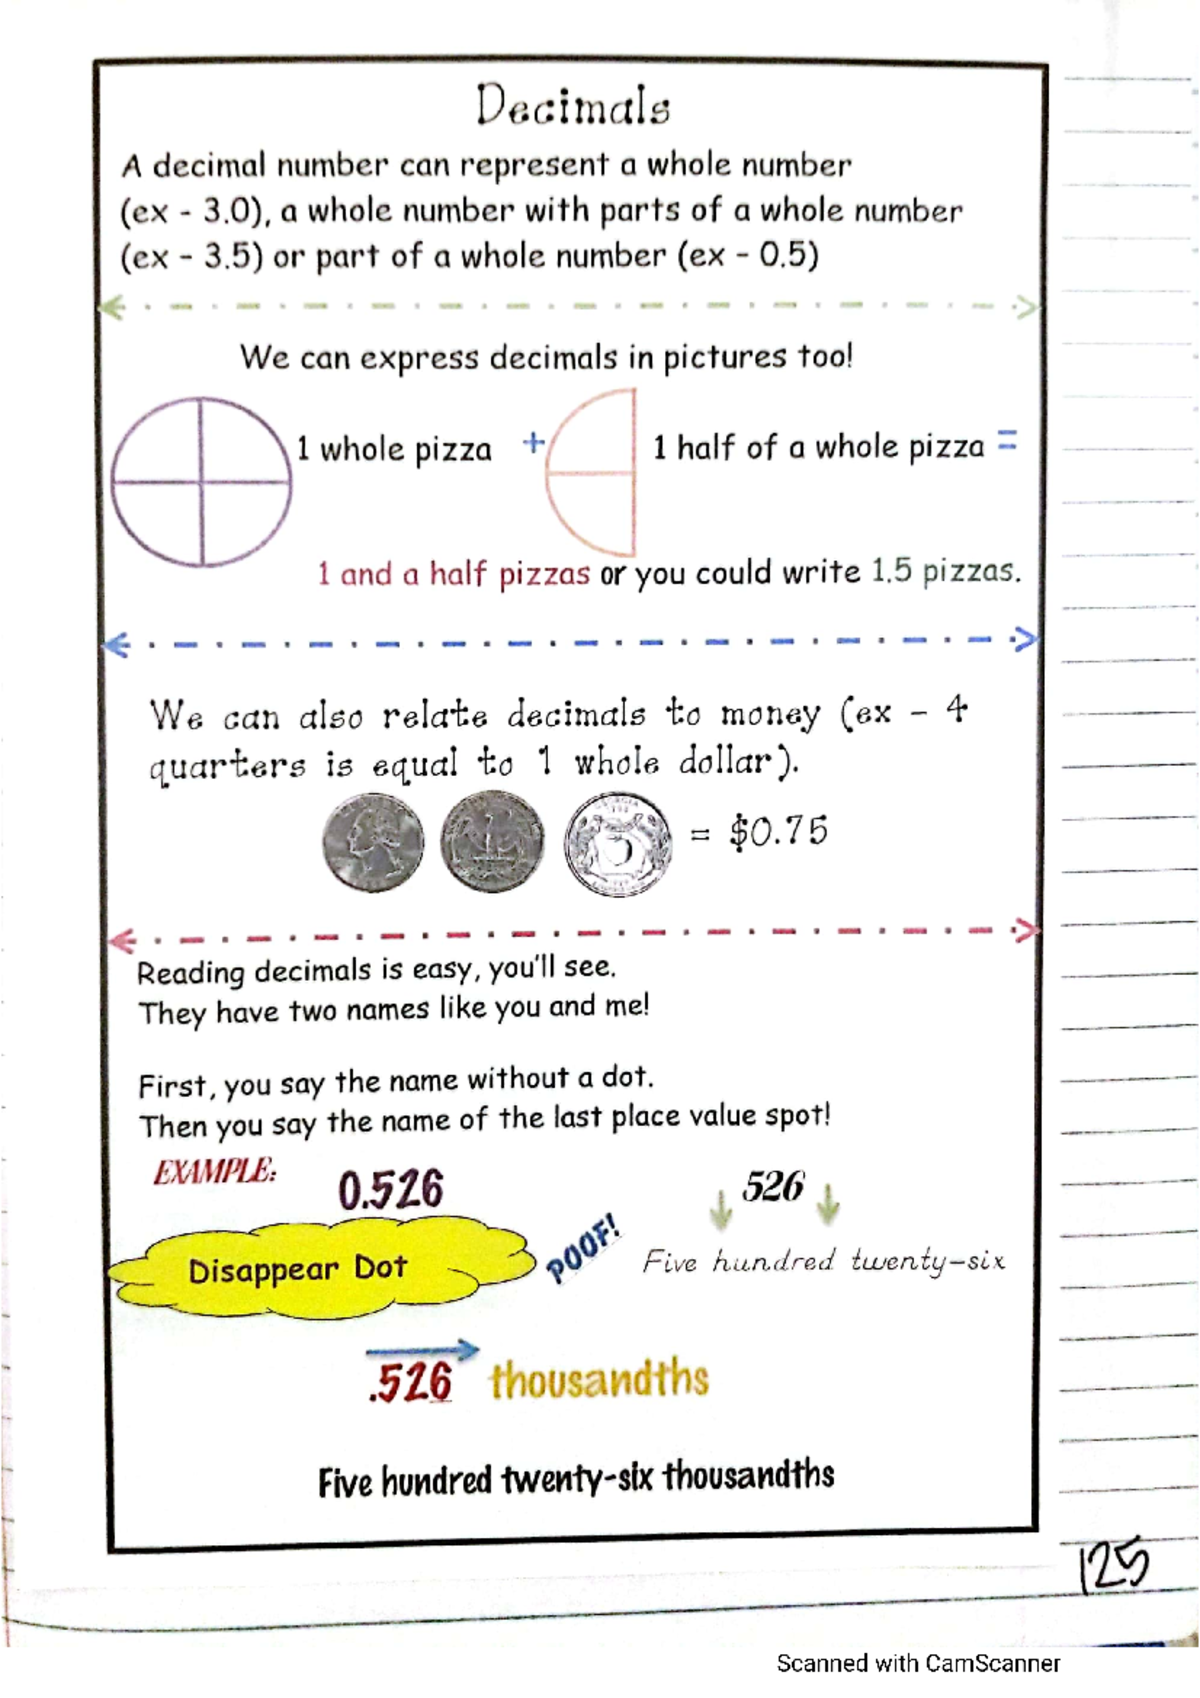 Decimals
A decimal number can represent a whole number
(ex - 3.0), a whole number with parts of a whole number
(ex - 3.5) or part of a whole number (ex - 0.5)
We can express decimals in pictures too!
1 whole pizza + 1 half of a whole pizza =
1 and a half pizzas or you could write 1.5 pizzas.
We can also relate decimals to money (ex - 4
quarters is equal to 1 whole dollar).
= $0.75
Reading decimals is easy, you'll see.
They have two names like you and me!
First, you say the name without a dot.
Then you say the name of the last place value spot!
EXAMPLE:
0.526
526
Disappear Dot
POOF!
Five hundred twenty-six
.526 thousandths
Five hundred twenty-six thousandths
125
Scanned with CamScanner